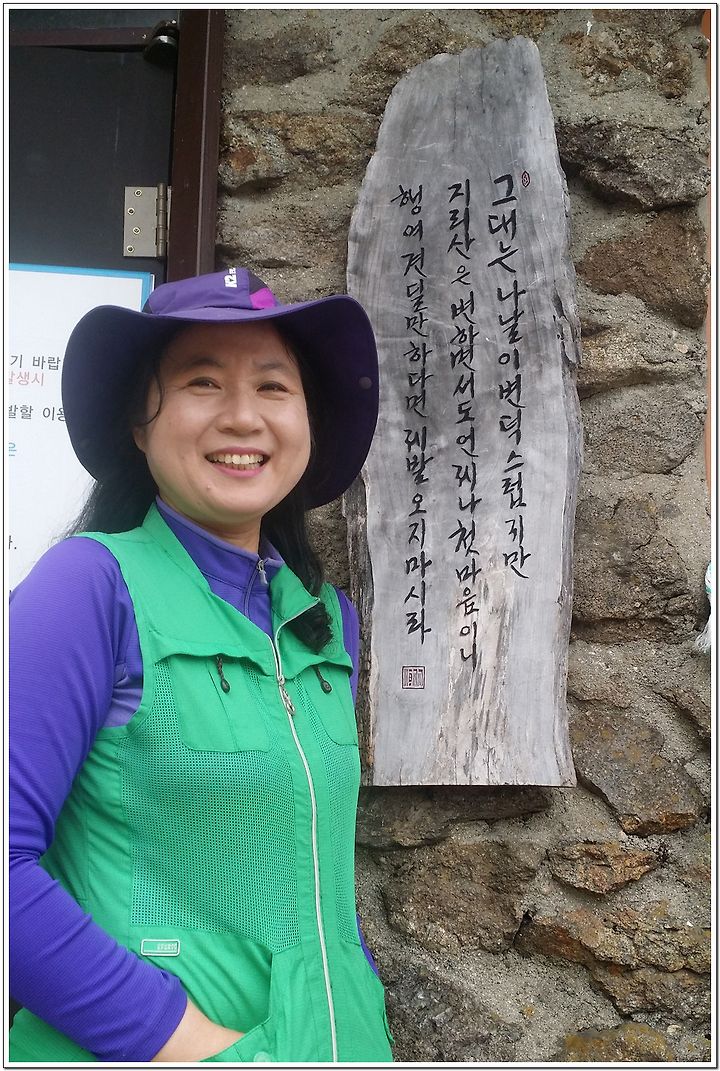 그대는 나날이 변덕스럽지만
지리산은 변하면서도 언제나 첫 마음이니
행여 견딜만 하다면 제발 오지 마시라
기 바랍
발생시
발할 이용
은
다.
K2